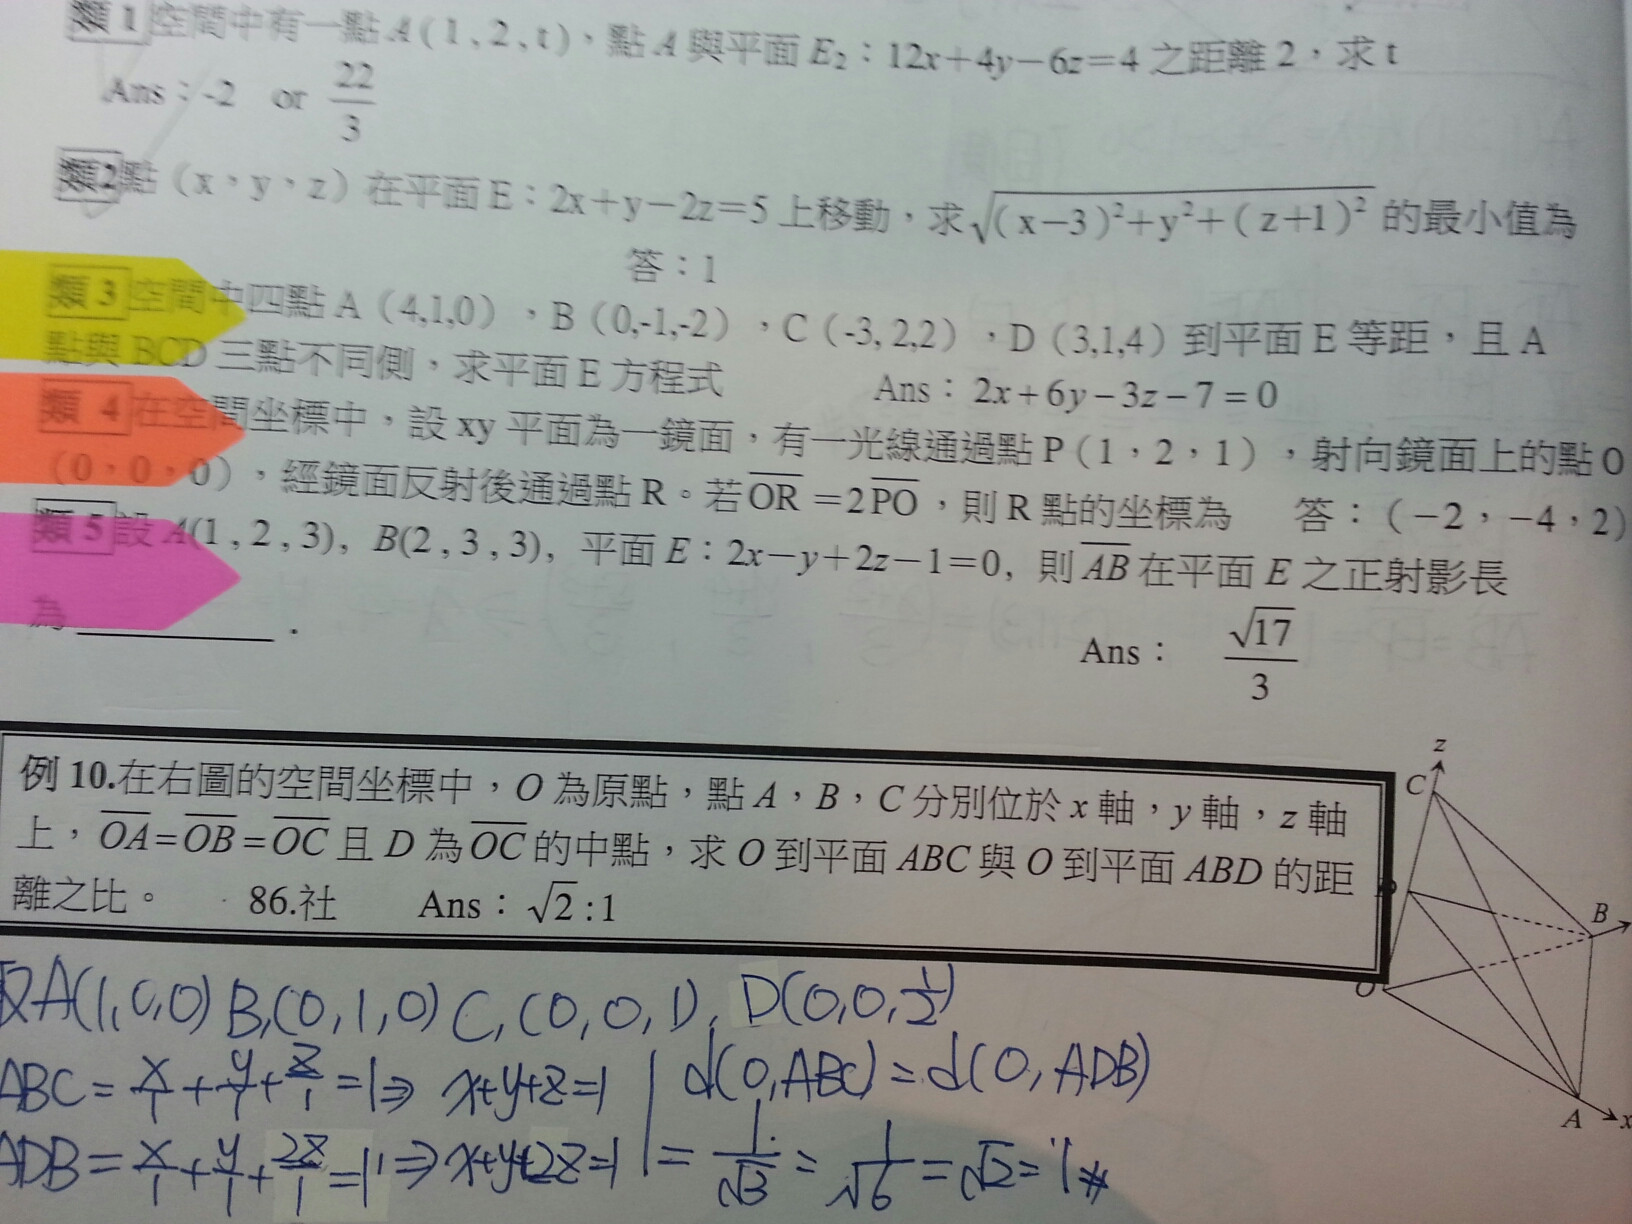 類1 空間中有一點 A(1,2,t)，點 A 與平面 E₂：12x+4y−6z=4 之距離 2，求 t
Ans：-2 or 22/3
類2 點（x，y，z）在平面 E：2x+y−2z=5 上移動，求√((x−3)²+y²+(z+1)²) 的最小值為
答：1
類3 空間中四點 A（4,1,0），B（0,-1,-2），C（-3,2,2），D（3,1,4）到平面 E 等距，且 A
點與 BCD 三點不同側，求平面 E 方程式 Ans：2x+6y−3z−7=0
類 4 在空間坐標中，設 xy 平面為一鏡面，有一光線通過點 P（1，2，1），射向鏡面上的點 O
（0，0，0），經鏡面反射後通過點 R。若 O̅R̅ =2P̅O̅，則 R 點的坐標為 答：（−2，−4，2）
類5 設 A(1,2,3), B(2,3,3), 平面 E：2x−y+2z−1=0, 則 A̅B̅ 在平面 E 之正射影長
為 ________.
Ans： √17/3
例 10.在右圖的空間坐標中，O 為原點，點 A，B，C 分別位於 x 軸，y 軸，z 軸
上，O̅A̅=O̅B̅=O̅C̅ 且 D 為 O̅C̅ 的中點，求 O 到平面 ABC 與 O 到平面 ABD 的距
離之比。 86.社 Ans：√2:1
z
C
B
O
A
x
A(1,0,0) B,(0,1,0) C,(0,0,1), D(0,0,1/2)
ABC = x/1 + y/1 + z/1 = 1 ⇒ x+y+z=1 | d(O,ABC) = d(O,ADB)
ADB = x/1 + y/1 + 2z/1 = 1 ⇒ x+y+2z=1 | = 1/√3 = 1/√6 = √2 = 1 #